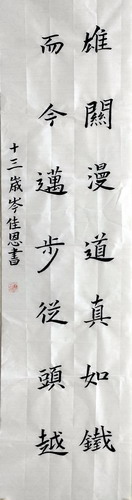 雄關漫道真如鐵
而今邁步從頭越
十三歲岑佳恩書